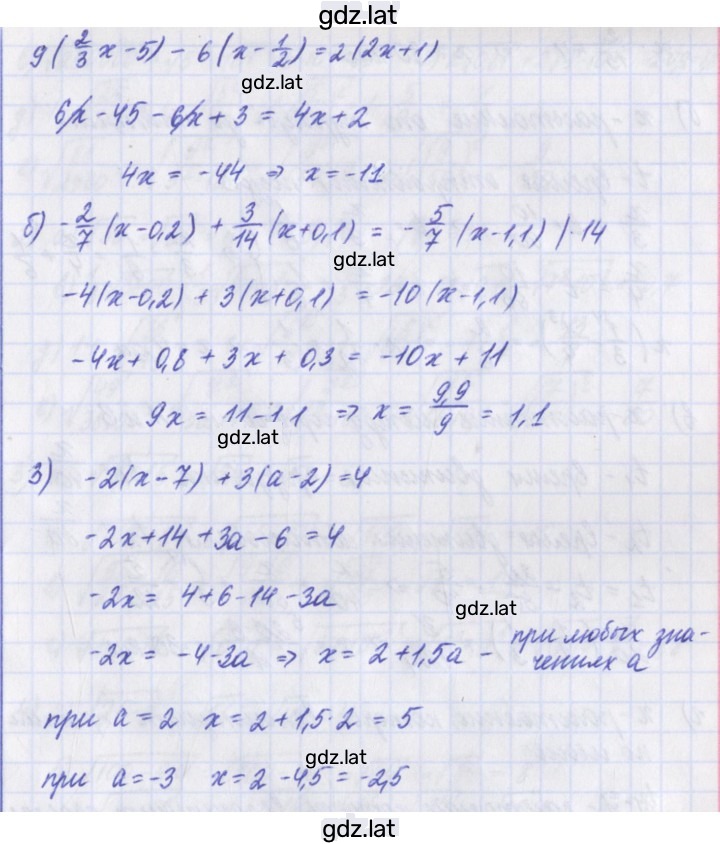 gdz.lat
9(2/3 x-5) - 6(x-1/2) = 2(2x+1)
gdz.lat
6x - 45 - 6x + 3 = 4x + 2
4x = -44 ⇒ x = -11
б) -2/7 (x-0,2) + 3/14 (x+0,1) = -5/7 (x-1,1) |·14
gdz.lat
-4(x-0,2) + 3(x+0,1) = -10(x-1,1)
-4x + 0,8 + 3x + 0,3 = -10x + 11
9x = 11 - 1,1 ⇒ x = 9,9/9 = 1,1
gdz.lat
3) -2(x-7) + 3(a-2) = 4
-2x + 14 + 3a - 6 = 4
-2x = 4 + 6 - 14 - 3a
gdz.lat
-2x = -4 - 3a ⇒ x = 2 + 1,5a - при любых зна-
чениях a
при a = 2 x = 2 + 1,5·2 = 5
gdz.lat
при a = -3 x = 2 - 4,5 = -2,5
gdz.lat